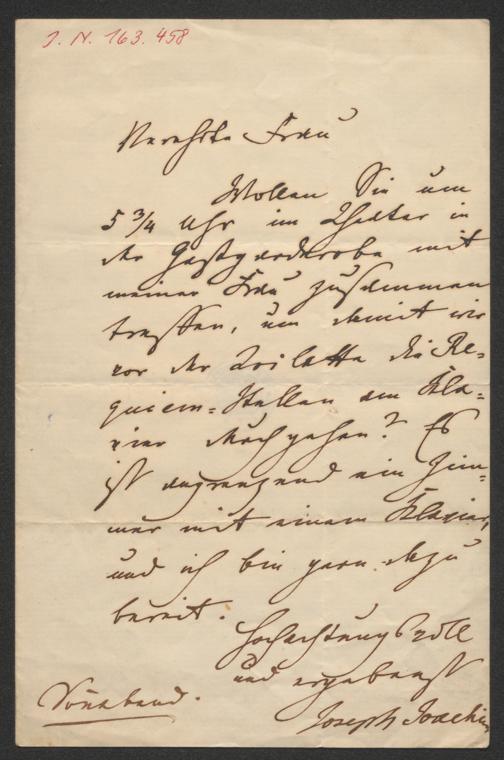 J. N. 163.458
Verehrte Frau
Wollen Sie um
5 3/4 Uhr im Theater in
der Gastgarderobe mit
meiner Frau zusammen
treffen, um damit wir
vor der Toilette die Re-
quiem-Stellen am Kla-
vier durchgehen? Es
ist angrenzend ein Zim-
mer mit einem Klavier,
und ich bin gern dazu
bereit.
Hochachtungsvoll
und ergebenst
Joseph Joachim
Sonnabend.